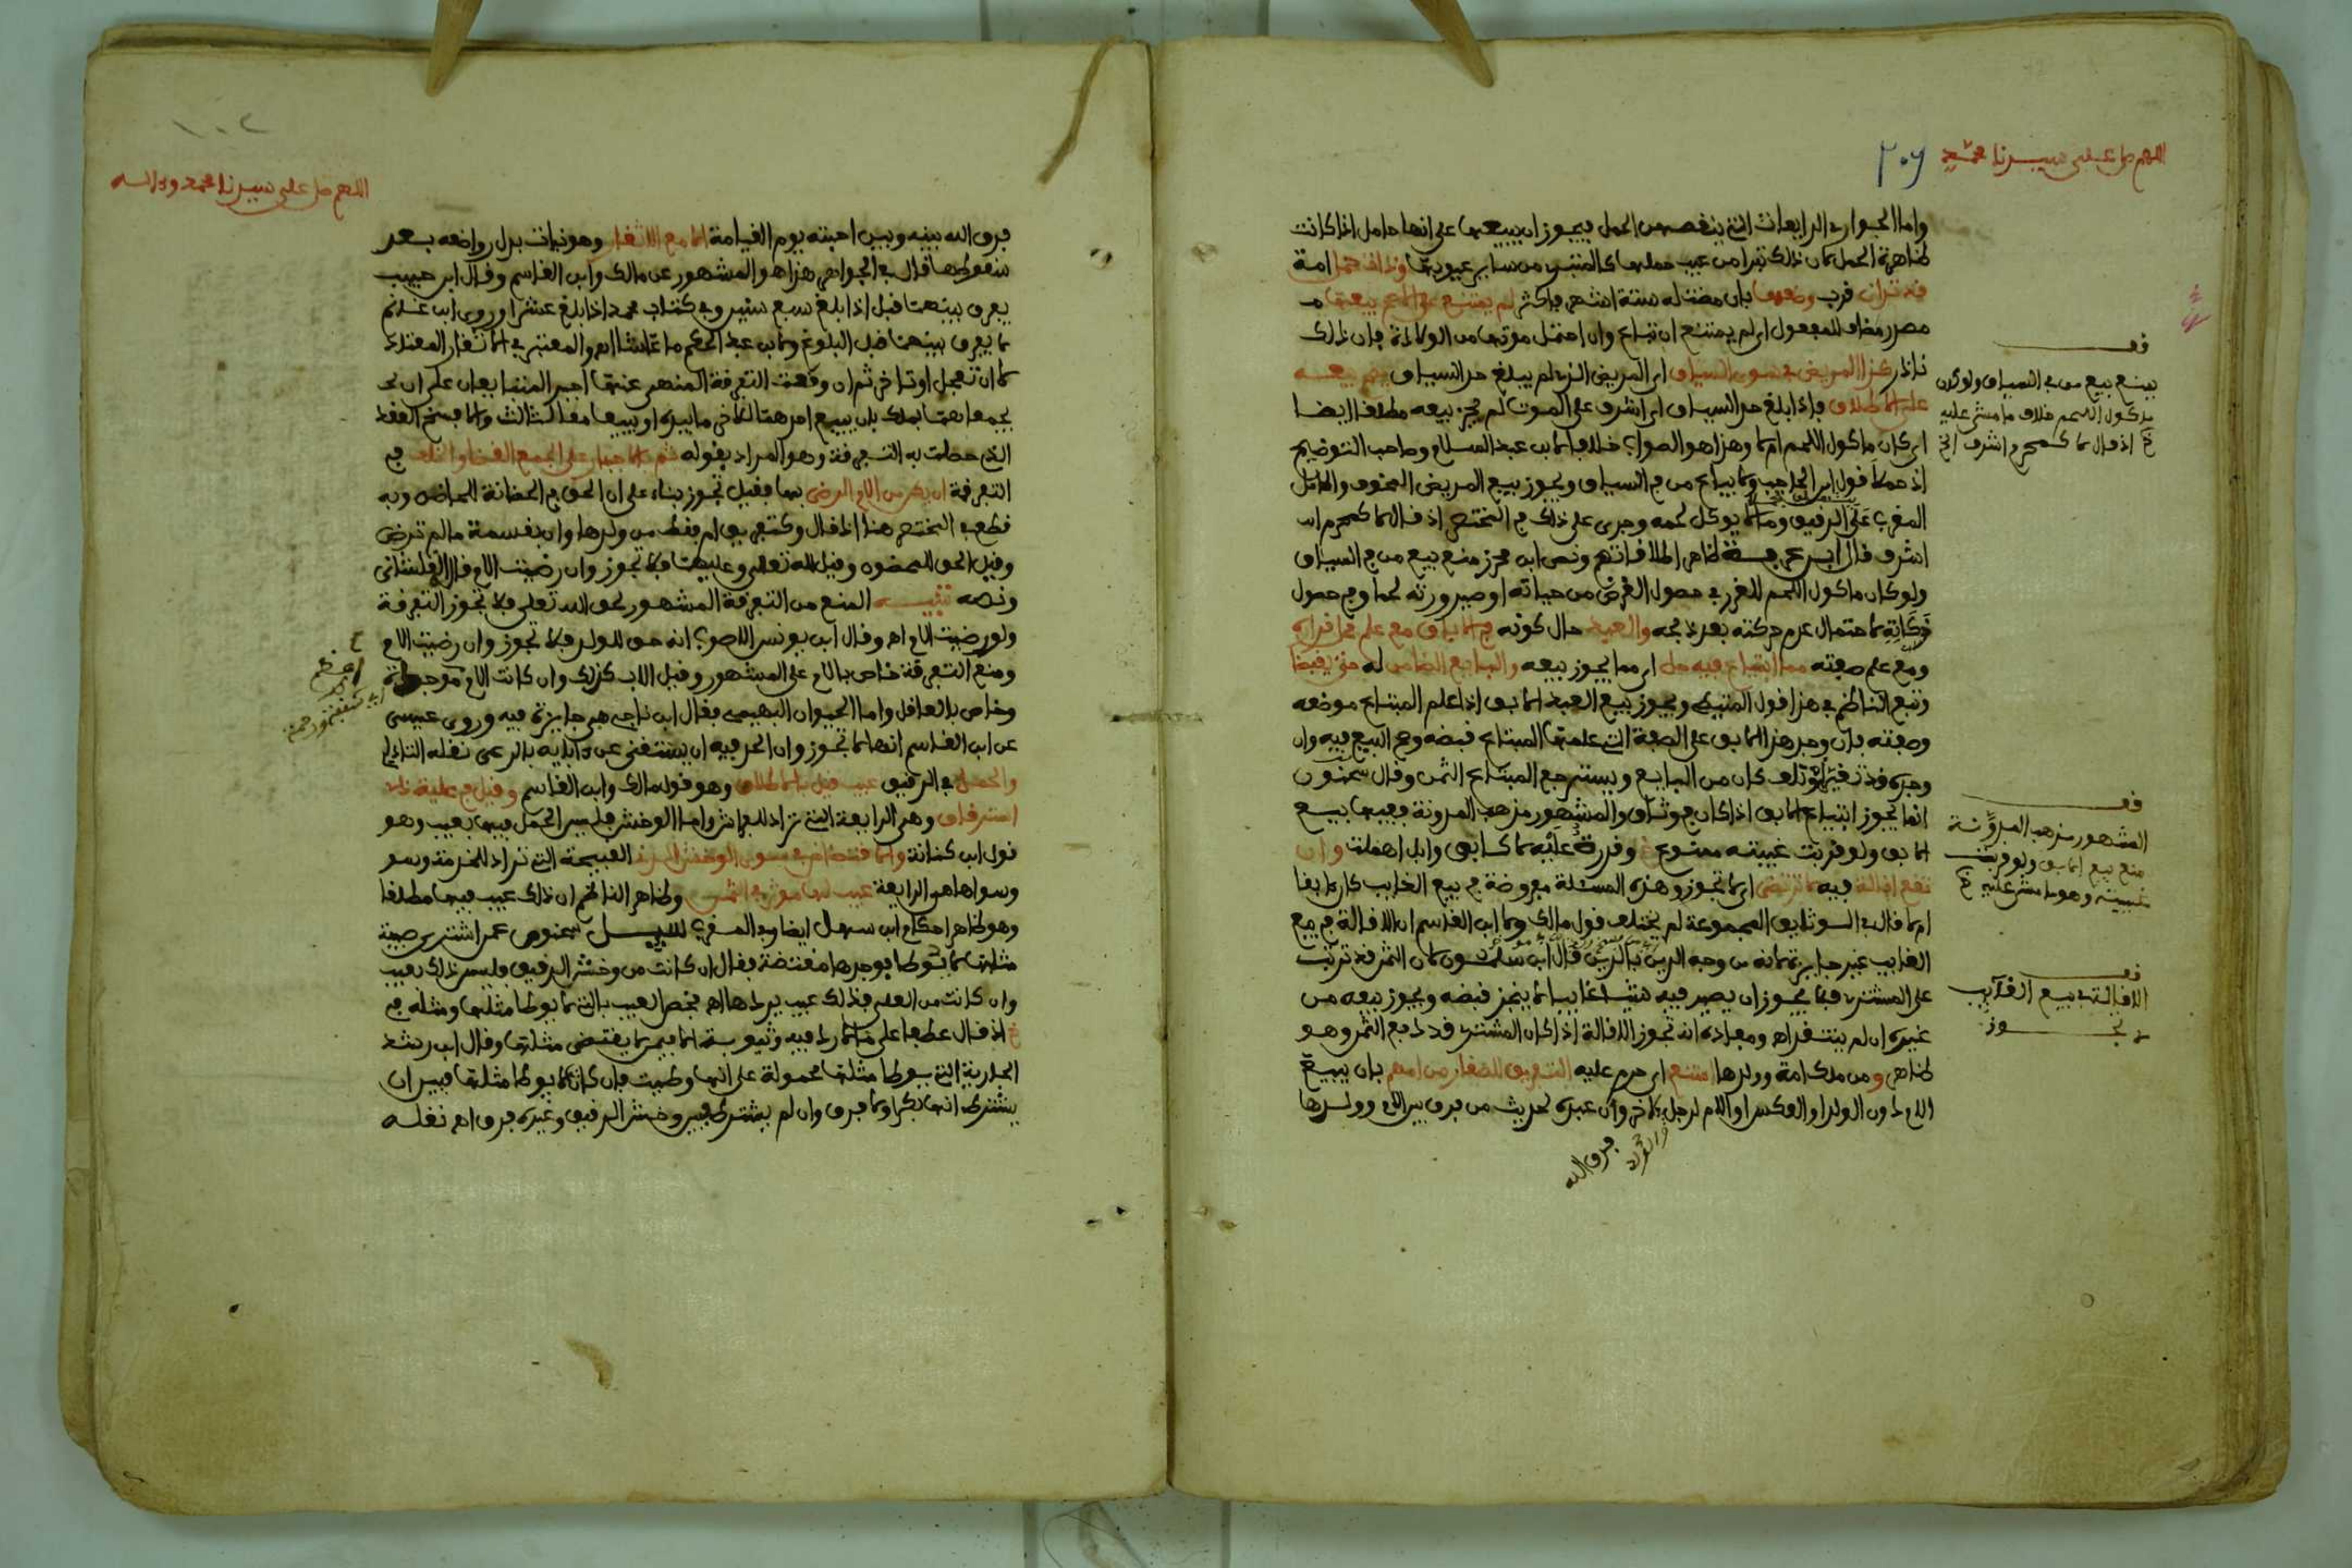 اللهم صل على سيدنا محمد
٢٠٦
واما الجوار الرايعات التي ينقصهن الحمل فيجوز ان يبيعها على انها حامل اذا كانت
ظاهرة الحمل لان ذلك تبرا من عيب حملها كالتبري من ساير عيوبها امة
قرب وضعها بان مضت له ستة اشهر فاكثر لم يمتنع على الاصح بيعها
مصدر مضاف للمفعول اي لم يمتنع ان تباع وان احتمل موتها من الولادة فان ذلك
نادر كذا المريض في سوى السياق اي المريض الذي لم يبلغ حد السياق يصح بيعه
على الاطلاق فاذا بلغ حد السياق اي اشرف على الموت لم يجز بيعه مطلقا ايضا
اي كان ماكول اللحم ام لا وهذا هو الصواب خلافا لابن عبد السلام وصاحب التوضيح
اذ حملا قول ابن الحاجب ولا يباع من في السياق ويجوز بيع المريض المخوف والحامل
المقرب على الرقيق وما لا يوكل لحمه وجرى على ذلك في المختصر اذ قال لا كمحرم
اشرف قال ابن عرفة ظاهر اطلاقاتهم ونص ابن محرز منع بيع من في السياق
ولو كان ماكول اللحم للغرر في حصول الغرض من حياته او صيرورته لحما وفي حصول
ذكاته لاحتمال عدم حركته بعد ذبحه والعبد حال كونه في الاباق مع علم
ومع علم صفته مما ابتياع فيه حل اي مما يجوز بيعه والبايع الضامن له حتى يقبضا
وتبع الناظم في هذا قول المتيطي ويجوز بيع العبد الابق اذا علم المبتاع موضعه
وصفته فان وجد هذا الابق على الصفة التي علمها المبتاع قبضه وصح البيع فيه وان
وجده قد تغير او تلف كان من البايع ويسترجع المبتاع الثمن وقال سحنون
انما يجوز ابتياع الابق اذا كان في وثاق والمشهور مذهب المدونة ففيها بيع
الابق ولو قربت غيبته ممنوع وقدرة عليه لا كابق وابل اهملت وان
تقع اقالة فيه لا ترتضى اي لا تجوز وهذه المسئلة مفروضة في بيع الغايب
ام لا قال في الوثايق المجموعة لم يختلف قول مالك وابن القاسم ان الاقالة في بيع
الغايب غير جايزة لانه من وجه الدين بالدين قال ابن سلمون لان الثمن قد ترتب
على المشتري فلا يجوز ان يصير فيه شيئا غايبا لا ينجز قبضه ويجوز بيعه من
غيره ان لم ينتقد اه ومفاده انه تجوز الاقالة اذا كان المشتري قد دفع الثمن وهو
ظاهر ومن ملك امة وولدها امتنع اي حرم عليه التفريق للصغار من امهم بان يبيع
الام دون الولد او العكس او الام لرجل والولد لاخر وان عبده لحديث من فرق بين الام وولدها
فرق الله
قف
يمنع بيع من في السياق ولو كان
ماكول اللحم خلاف ما مشى عليه
خ اذ قال لا كمحرم اشرف الخ
قف
المشهور مذهب المدونة
منع بيع الابق ولو قربت
غيبته وهو ما مشى عليه خ
قف
الاقالة في بيع الغايب
لا تجوز
١٠٢
اللهم صل على سيدنا محمد وءاله
فرق الله بينه وبين احبته يوم القيامة اما مع الاثغار وهو نبات بدل رواضعه بعد
سقوطها قال في الجواهر هذا هو المشهور عن مالك وابن القاسم وقال ابن حبيب
يفرق بينهما قبل اذا بلغ سبع سنين وفي كتاب محمد اذا بلغ عشرا وروى ابن غانم
لا يفرق بينهما قبل البلوغ ولابن عبد الحكم ما عاشا اه والمعتبر في الاثغار المعتاد
لا ان تعجل او تراخى ثم ان وقعت التفرقة المنهى عنها اجبر المتبايعان على ان
يجمعاهما بملك بان يبيع احدهما للاخر ما بيده او يبيعا معا لثالث والا فسخ العقد
الذي حصلت به التفرقة وهو المراد بقوله ثم بالاجبار على الجمع القضا والخلف في
التفرقة ان يكن من الام الرضى بها فقيل تجوز بناء على ان الحق في الحضانة للحاضن وبه
قطع في المختصر هنا اذ قال وكتفريق ام فقط من ولدها وان بقسمة ما لم ترض
وقيل الحق للمحضون وقيل لله تعالى وعليهما فلا تجوز وان رضيت الام قال القلشاني
ونصه تنبيه المنع من التفرقة المشهور لحق الله تعالى فلا تجوز التفرقة
ولو رضيت الام اه وقال ابن يونس الصواب انه حق للولد فلا تجوز وان رضيت الام
ومنع التفرقة خاص بالام على المشهور وقيل الاب كذلك وان كانت الام موجودة
وخاص بالعاقل واما الحيوان البهيمي فقال ابن ناجي هي جايزة فيه وروى عيسى
عن ابن القاسم انها لا تجوز وان الحد فيه ان يستغني عن ءابايه بالرعي نقله التتائي
والحمل في الرقيق عيب قيل بالاطلاق وهو قول مالك وابن القاسم وقيل في علية ذا
استرقاق وهي الرايعة التي تراد للفراش واما الوخش فليس الحمل فيها بعيب وهو
قول ابن كنانة القبيحة التي تراد للخدمة وسو
وسواها هي الرايعة عيب لها موثر في الثمن وظاهر الناظم ان ذلك عيب فيها مطلقا
وهو ظاهر احكام ابن سهل ايضا وفي المفيد سيل سحنون عمن اشترى صبية
مثلها لا توطا فوجدها مفتضة فقال ان كانت من وخش الرقيق فليس ذلك بعيب
وان كانت من العلي فذلك عيب يردها اه فخص العيب بالتي لا يوطا مثلها ومثله في
خ اذ قال عطفا على ما لا رد فيه وثيوبة الا فيمن لا يفتض مثلها وقال ابن رشد
الجارية التي يوطا مثلها محمولة على انها وطيت فان كان لا يوطا مثلها فبين ان
يشترط انها بكر اولا فرق وان لم يشترط فبين وخش الرقيق وغيره فرق اه نقله